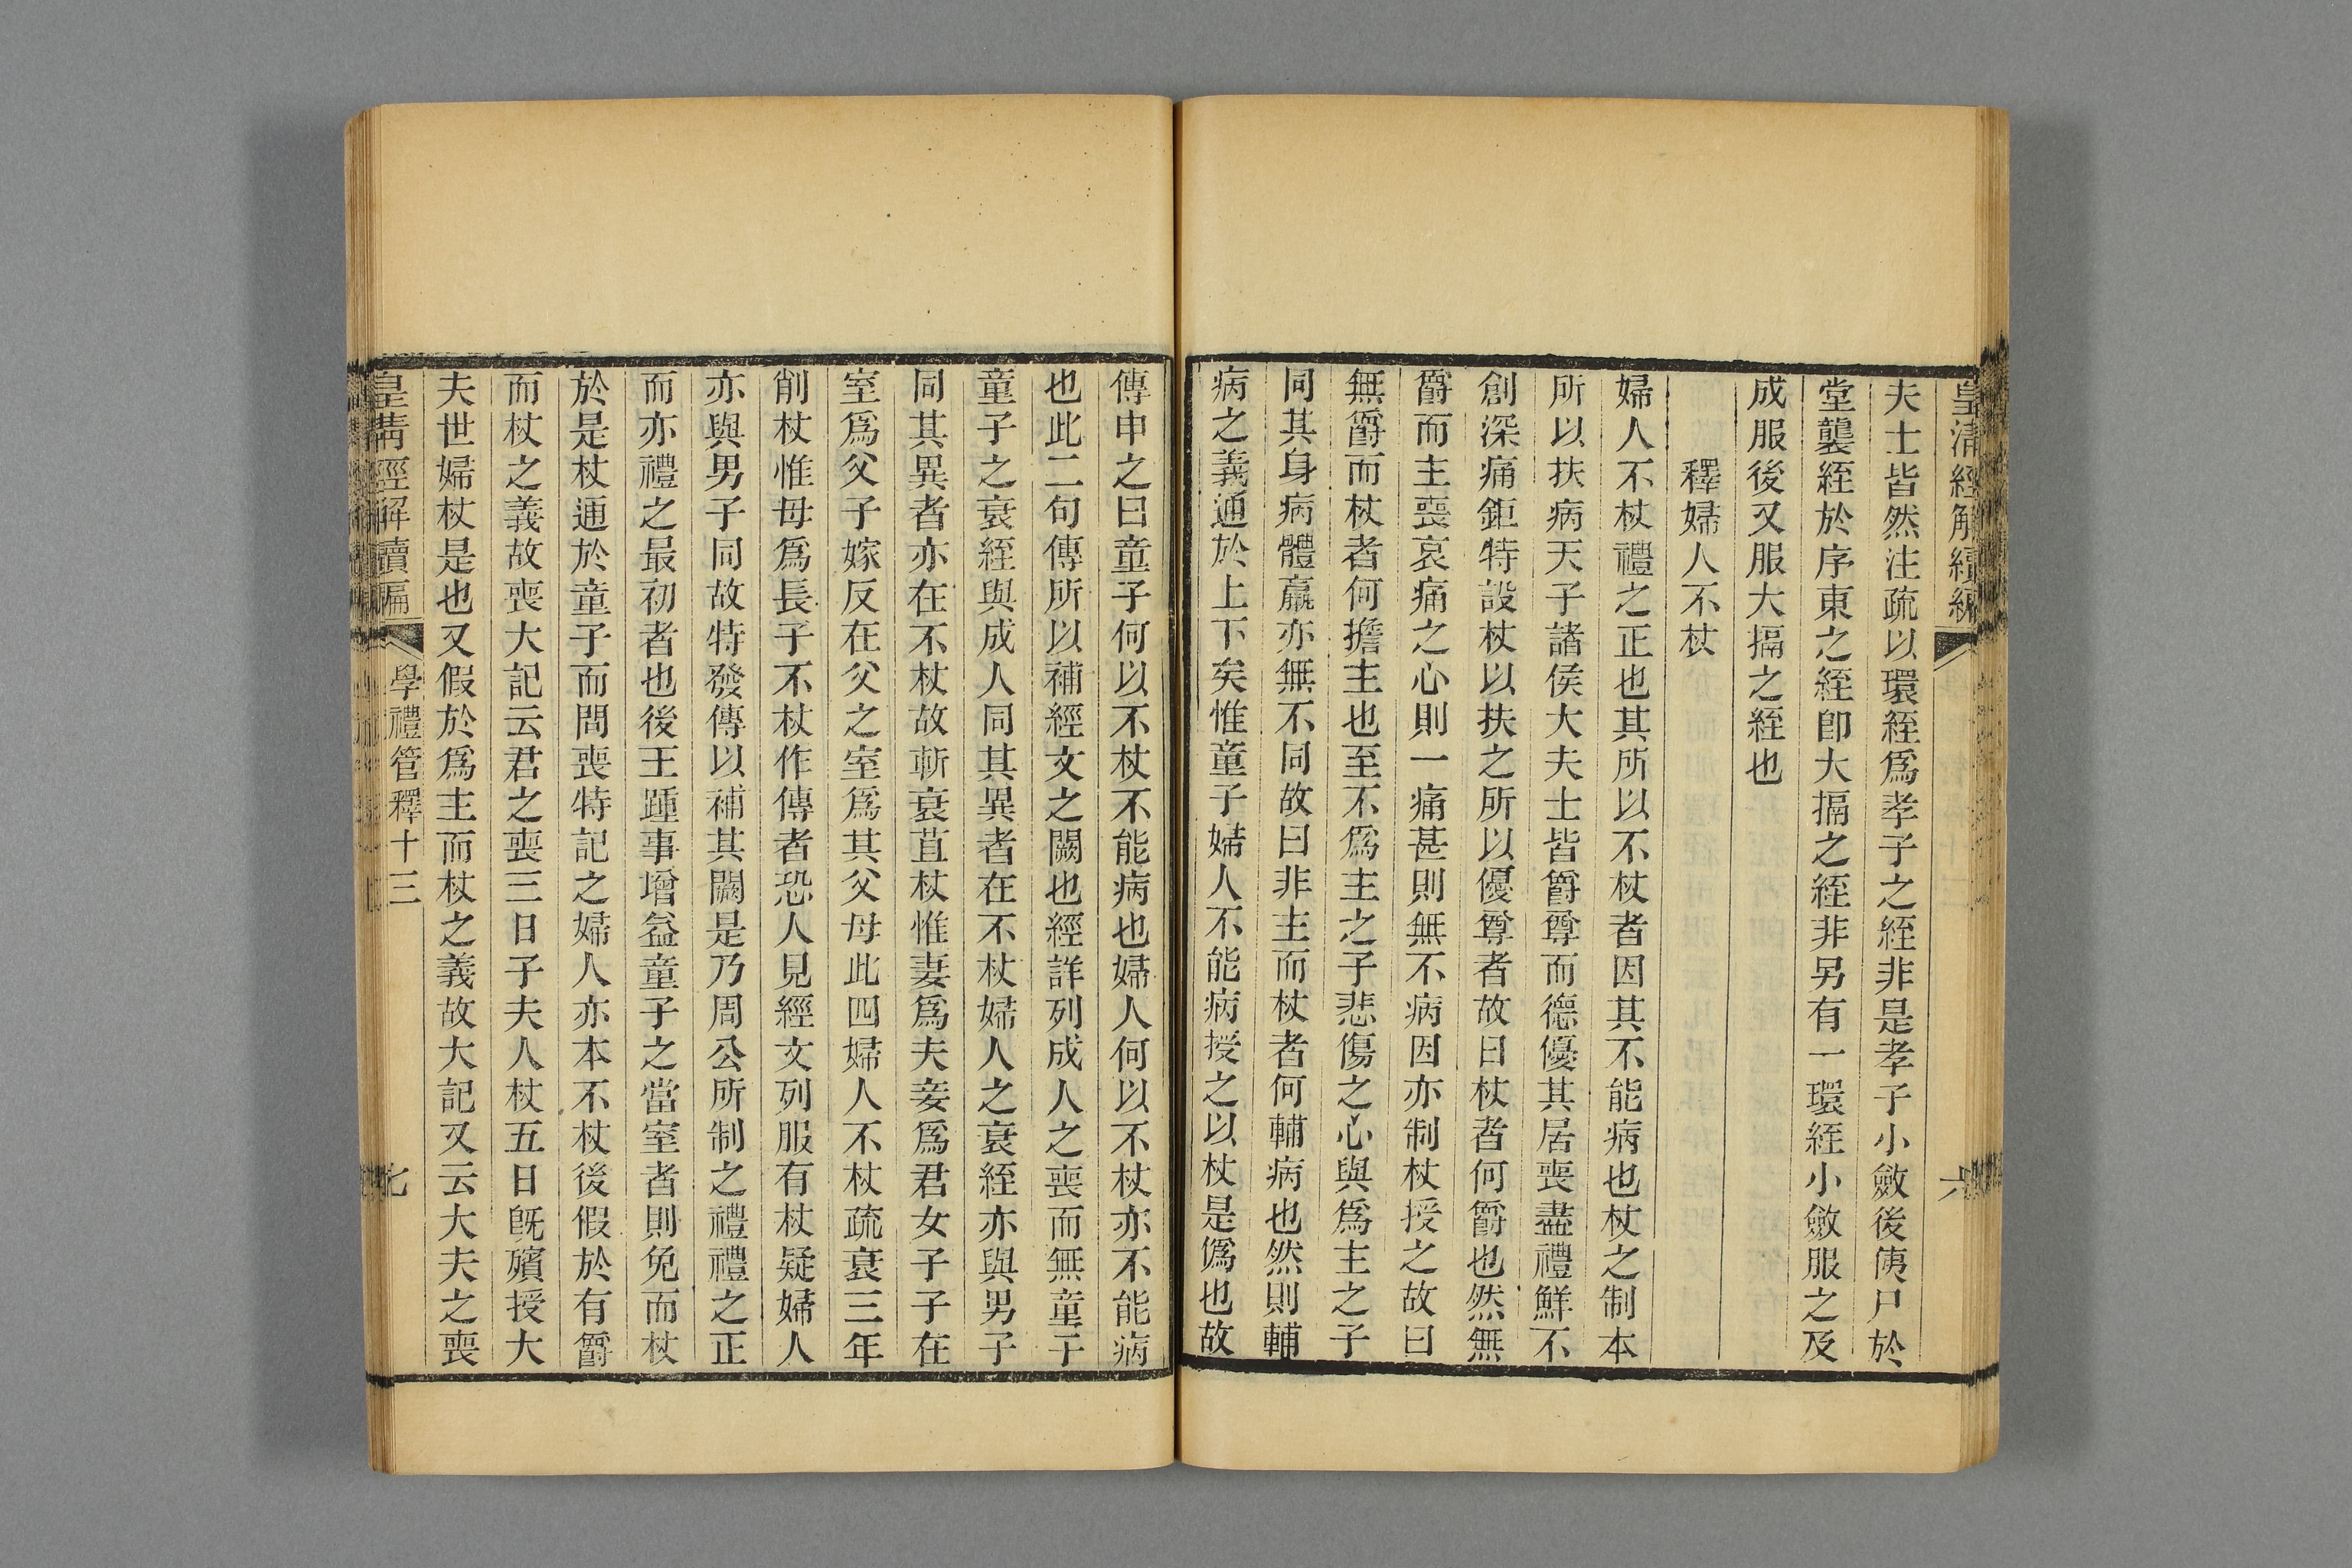 皇清經解續編
六
夫士皆然注疏以環絰爲孝子之絰非是孝子小斂後侇尸於
堂襲絰於序東之絰卽大搹之絰非另有一環絰小斂服之及
成服後又服大搹之絰也
釋婦人不杖
婦人不杖禮之正也其所以不杖者因其不能病也杖之制本
所以扶病天子諸侯大夫士皆爵尊而德優其居喪盡禮鮮不
創深痛鉅特設杖以扶之所以優尊者故曰杖者何爵也然無
爵而主喪哀痛之心則一痛甚則無不病因亦制杖授之故曰
無爵而杖者何擔主也至不爲主之子悲傷之心與爲主之子
同其身病體羸亦無不同故曰非主而杖者何輔病也然則輔
病之義通於上下矣惟童子婦人不能病授之以杖是僞也故
傳申之曰童子何以不杖不能病也婦人何以不杖亦不能病
也此二句傳所以補經文之闕也經詳列成人之喪而無童子
童子之衰絰與成人同其異者在不杖婦人之衰絰亦與男子
同其異者亦在不杖故斬衰苴杖惟妻爲夫妾爲君女子子在
室爲父子嫁反在父之室爲其父母此四婦人不杖疏衰三年
削杖惟母爲長子不杖作傳者恐人見經文列服有杖疑婦人
亦與男子同故特發傳以補其闕是乃周公所制之禮禮之正
而亦禮之最初者也後王踵事增益童子之當室者則免而杖
於是杖通於童子而問喪特記之婦人亦本不杖後假於有爵
而杖之義故喪大記云君之喪三日子夫人杖五日旣殯授大
夫世婦杖是也又假於爲主而杖之義故大記又云大夫之喪
皇清經解續編
學禮管釋十三
七